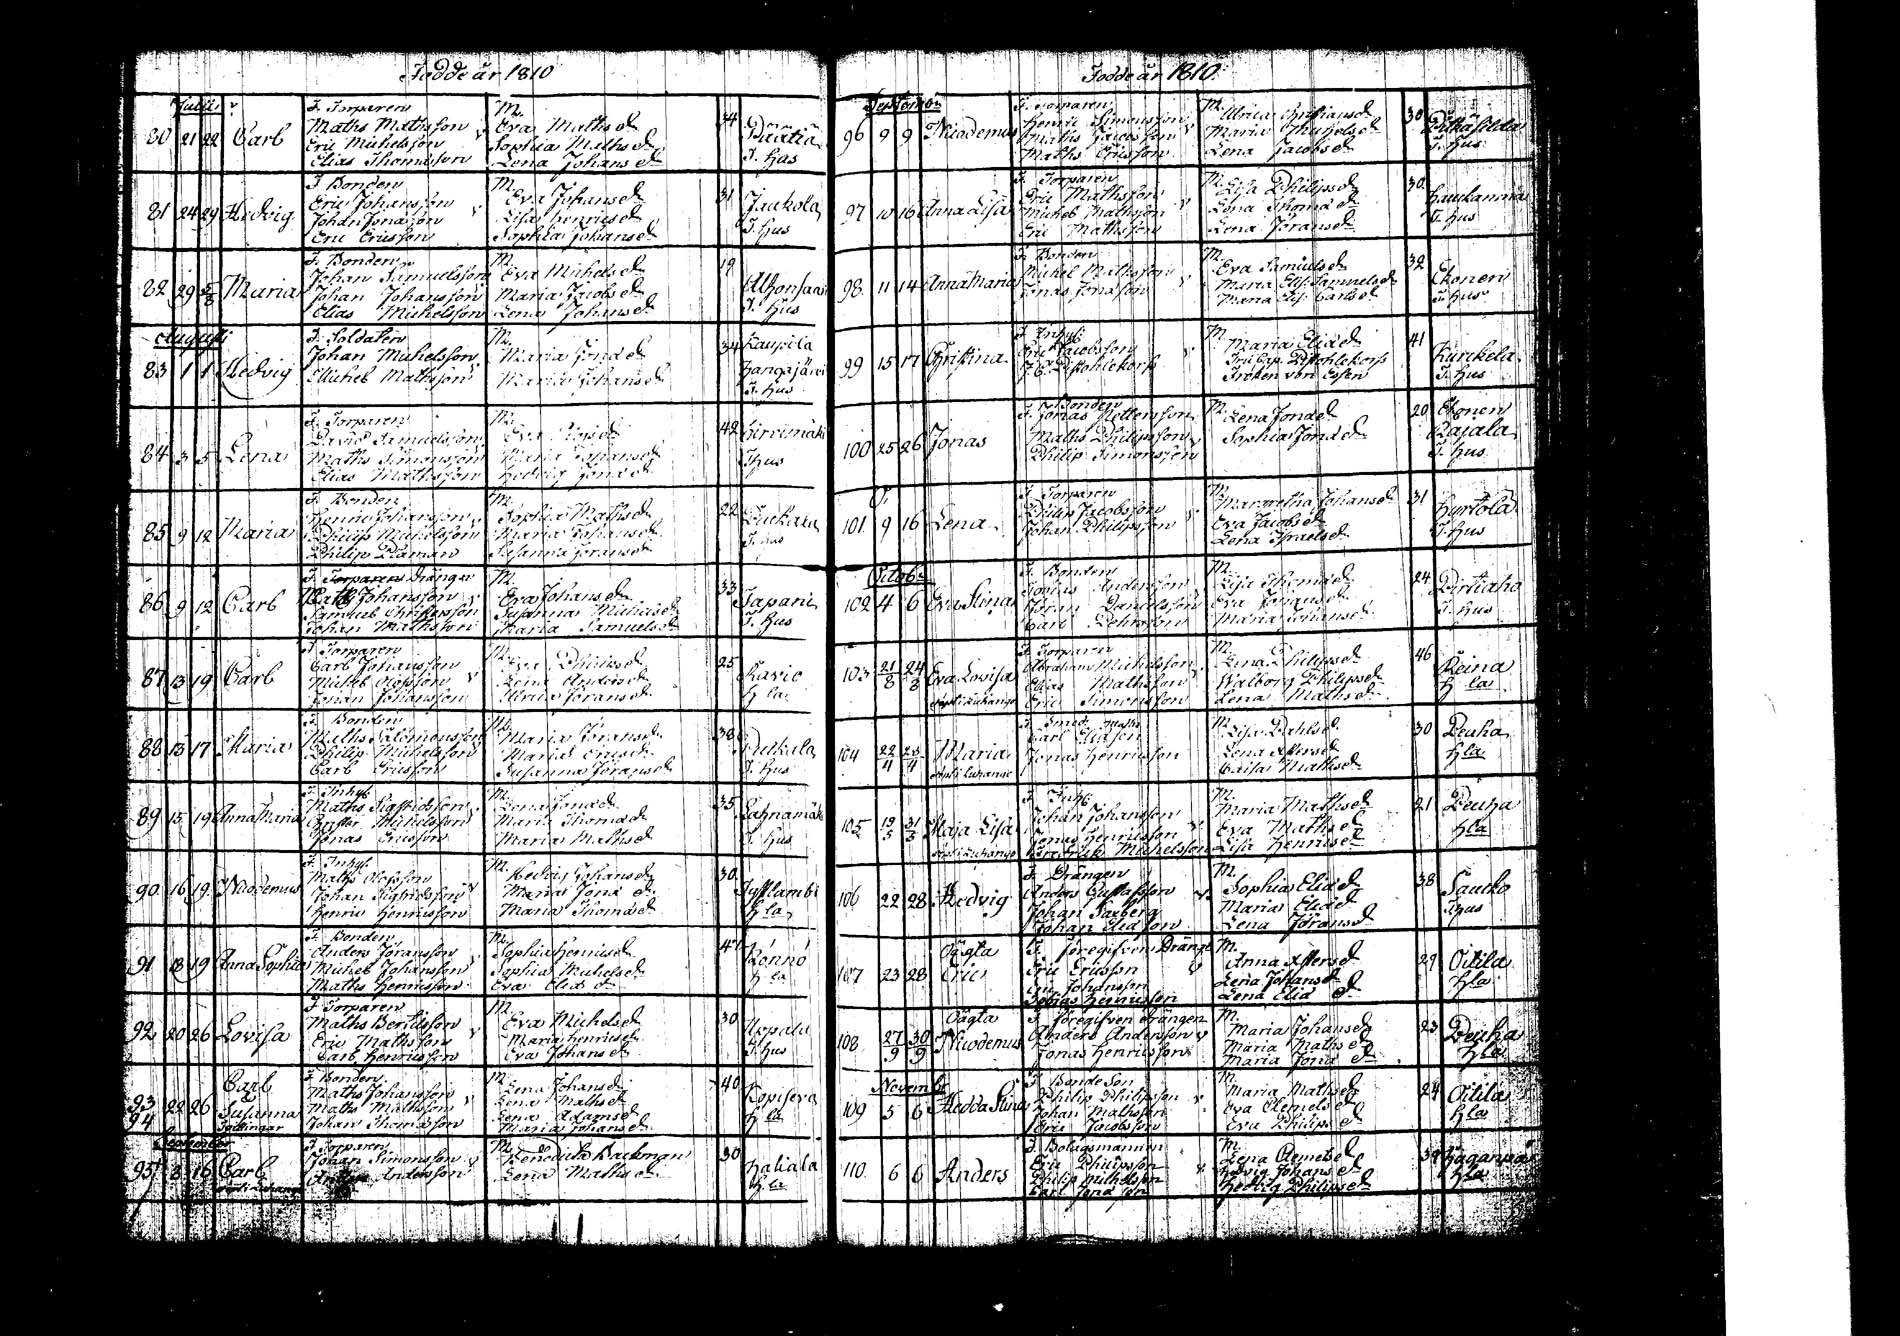 Födde år 1810
Julii
80 21 22 Carl
F. Torparen
Maths Mathsson
Eric Michelsson
Elias Thomasson
M.
Eva Mathsd.
Sophia Mathsd.
Lena Johansd.
34
T. hus
81 24 29 Hedvig
F. Bonden
Eric Johansson
Johan Jonasson
Eric Ericsson
M.
Eva Johansd.
Lisa Henricsd.
Sophia Johansd.
31
Jaukola
T. hus
82 29 Maria
F. Bonden
Johan Samuelsson
Johan Johansson
Elias Michelsson
M.
Eva Michelsd.
Maria Jacobsd.
Lena Johansd.
19
T. hus
Augusti
83 1 1 Hedvig
F. Soldaten
Johan Michelsson
Michel Mathsson
M.
Maria Jonæd.
Maria Johansd.
34
Kaupila
T. hus
84 3 5 Lena
F. Torparen
David Samuelsson
Maths Simonsson
Elias Mathsson
M.
Eva
Maria Johansd.
Hedvig Jonæd.
42
Hirvimäki
T. hus
85 9 12 Maria
F. Bonden
Henric Johansson
Philip Michelsson
Philip
M.
Sophia Mathsd.
Maria Johansd.
Susanna Jöransd.
22
T. hus
86 9 12 Carl
F. Torparen Drängen
Johansson
Samuel Christersson
Johan Mathsson
M.
Eva Johansd.
Susanna Mathsd.
Maria Samuelsd.
33
Tapani
T. hus
87 13 19 Carl
F. Torparen
Carl Johansson
Michel Olofsson
Johan Johansson
M.
Eva
Lena Andersd.
Maria Jöransd.
25
Kavio
H la
88 13 17 Maria
F. Bonden
Maths Salomonsson
Philip Michelsson
Carl Ericsson
M.
Maria Jöransd.
Maria Ericsd.
Susanna Jöransd.
38
T. hus
89 15 19 Anna Maria
F. Inhys.
Maths Sigfridsson
Christer Michelsson
Jonas Ericsson
M.
Lena Jonæd.
Maria Thomæd.
Maria Mathsd.
35
Lahnamäki
T. hus
90 16 19 Nicodemus
F. Inhys.
Maths Olofsson
Johan Sigfridsson
Henric Henricsson
M.
Hedvig Johansd.
Maria Jonæ d.
Maria Thomæd.
30
H la
91 18 19 Anna Sophia
F. Bonden
Anders Jöransson
Michel Johansson
Maths Henricsson
M.
Sophia Henricsd.
Sophia Michelsd.
Eva Eliæ d.
Könnö
H la
92 20 26 Lovisa
F. Torparen
Maths Bertilsson
Eric Mathsson
Carl Henricsson
M.
Eva Michelsd.
Maria Henricsd.
Eva Johansd.
30
Uppala
T. hus
93
94 22 26
Carl
&
Susanna
Tvillingar
F. Bonden
Maths Johansson
Maths Mathsson
Johan Thomasson
M.
Lena Johansd.
Lena Mathsd.
Lena Adamsd.
Maria Johansd.
40
H la
September
95 8 16 Carl
F. Torparen
Johan Simonsson
Anders Andersson
M.
Backman
Lena Mathsd.
30
Haliala
H la
Födde år 1810
September
96 9 9 Nicodemus
F. Torparen
Henric Simonsson
Maths Jacobsson
Maths Ericsson
M.
Ulrica Christiansd.
Maria Michelsd.
Lena Jacobsd.
30
T. hus
97 10 16 Anna Lisa
F. Torparen
Eric Mathsson
Michel Mathsson
Eric Mathsson
M.
Lisa Philipsd.
Lena Thomæd.
Lena Jöransd.
30
T. hus
98 11 14 Anna Maria
F. Bonden
Michel Mathsson
Jonas Jonasson
M.
Eva Samuelsd.
Maria Elis. Samuelsd.
Maria Elis. Carlsd.
32
Ekonen
T. hus
99 15 17 Christina
F. Inhys:
Eric Jacobsson
M.
Maria Eliæd.
Fröken von Essen
41
Kurikela
T. hus
100 25 26 Jonas
F. Bonden
Jonas Pettersson
Maths Philipsson
Philip Simonsson
M.
Lena Jonæd.
Sophia Jonæd.
20
Ekonen
Rajala
T. hus
101 9 16 Lena
F. Torparen
Philip Jacobsson
Johan Philipsson
M.
Margretha Johansd.
Eva Jacobsd.
Lena Israelsd.
31
Hyrtölä
T. hus
Octobr.
102 4 6 Eva Stina
F. Bonden
Andersson
Jöran Danielsson
Carl
M.
Lisa Thomæd.
Eva Jöransd.
Maria Johansd.
24
Pirttiaho
T. hus
103 21/8 24/8 Eva Lovisa
F. Torparen
Abraham Michelsson
Elias Mathsson
Eric Simonsson
M.
Lena Philipsd.
Walborg Philipsd.
Lena Mathsd.
46
Reina
H la
104 22/4 23/4 Maria
F. Smed.
Carl Eliasson
Jonas Henricsson
M.
Lisa Dahlsd.
Lena
Caisa Mathsd.
30
Peuha
H la
105 19/5 31/3 Maja Lisa
F. Inhys
Johan Johansson
Jonas Henricsson
Fredrik Michelsson
M.
Maria Mathsd.
Eva Mathsd.
Lisa Henricsd.
21
Peuha
H la
106 22 28 Hedvig
F. Drängen
Anders Gustafsson
Johan Saxberg
Johan Eliasson
M.
Sophia Eliæd.
Maria Eliæd.
Lena Jöransd.
38
Saukko
T. hus
107 23 28
Oägta
Eric
F. föregifven Dräng
Eric Ericsson
Eric Johansson
Tobias Henricsson
M.
Anna
Lena Johansd.
Lena Eliæ d.
29
Oitila
H la
108 27/9 30/9
Oägta
Nicodemus
F. föregifven Drängen
Anders Andersson
Jonas Henricsson
M.
Maria Johansd.
Maria Mathsd.
Maria Jonæ d.
23
Peuha
H la
Novemb.
109 5 6 Hedda Stina
F. Bonde Son
Philip Philipsson
Johan Mathsson
Eric Jacobsson
M.
Maria Mathsd.
Eva Clemetsd.
Eva Philipsd.
24
Oitila
H la
110 6 6 Anders
F. Bolagsmannen
Eric Philipsson
Philip Michelsson
Carl Jonasson
M.
Lena Clemetsd.
Hedvig Johansd.
Hedvig Philipsd.
39
H la